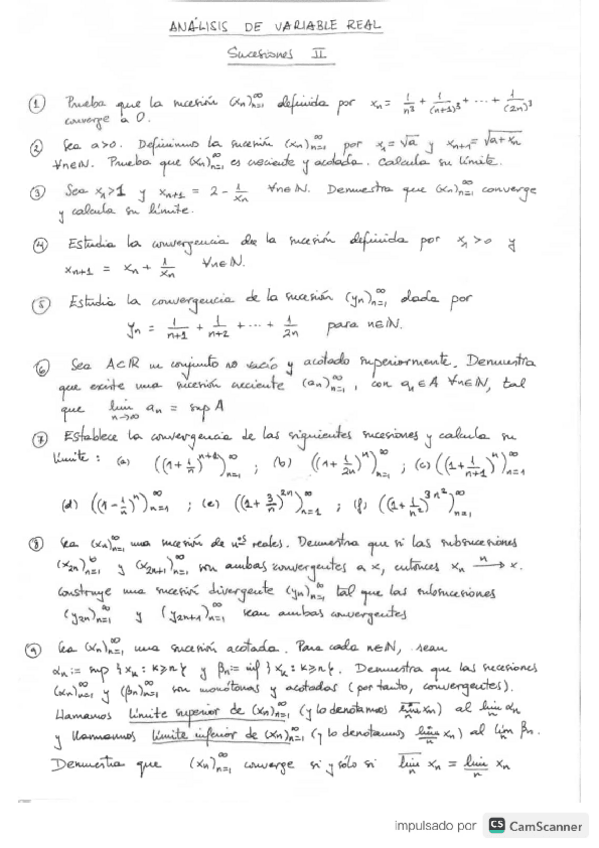 ANÁLISIS DE VARIABLE REAL
Sucesiones II
① Prueba que la sucesión (xn)∞n=1 definida por xn = 1/n³ + 1/(n+1)³ + ... + 1/(2n)³
converge a 0.
② Sea a>0. Definimos la sucesión (xn)∞n=1 por x1 = √a y xn+1 = √a+xn
∀n∈ℕ. Prueba que (xn)∞n=1 es creciente y acotada. Calcula su límite.
③ Sea x1>1 y xn+1 = 2 - 1/xn ∀n∈ℕ. Demuestra que (xn)∞n=1 converge
y calcula su límite.
④ Estudia la convergencia de la sucesión definida por x1>0 y
xn+1 = xn + 1/xn ∀n∈ℕ.
⑤ Estudia la convergencia de la sucesión (yn)∞n=1 dada por
yn = 1/n+1 + 1/n+2 + ... + 1/2n para n∈ℕ.
⑥ Sea A⊂ℝ un conjunto no vacío y acotado superiormente. Demuestra
que existe una sucesión creciente (an)∞n=1, con an∈A ∀n∈ℕ, tal
que lim n→∞ an = sup A
⑦ Establece la convergencia de las siguientes sucesiones y calcula su
límite: (a) ((1+1/n)^n+1)∞n=1 ; (b) ((1+1/2n)^n)∞n=1 ; (c) ((1+1/n+1)^n)∞n=1
(d) ((1-1/n)^n)∞n=1 ; (e) ((1+3/n)^2n)∞n=1 ; (f) ((1+1/n²)^3n²)∞n=1
⑧ Sea (xn)∞n=1 una sucesión de nºs reales. Demuestra que si las subsucesiones
(x2n)∞n=1 y (x2n+1)∞n=1 son ambas convergentes a x, entonces xn →n x.
Construye una sucesión divergente (yn)∞n=1 tal que las subsucesiones
(y2n)∞n=1 y (y2n+1)∞n=1 sean ambas convergentes
⑨ Sea (xn)∞n=1 una sucesión acotada. Para cada n∈ℕ, sean
αn := sup {xk : k≥n} y βn := inf {xk : k≥n}. Demuestra que las sucesiones
(αn)∞n=1 y (βn)∞n=1 son monótonas y acotadas (por tanto, convergentes).
Llamamos límite superior de (xn)∞n=1 (y lo denotamos l̅i̅m̅ n xn) al lim n αn
y llamamos límite inferior de (xn)∞n=1 (y lo denotamos l̲i̲m̲ n xn) al lim n βn.
Demuestra que (xn)∞n=1 converge si y sólo si l̅i̅m̅ n xn = l̲i̲m̲ n xn
Impulsado por CS CamScanner